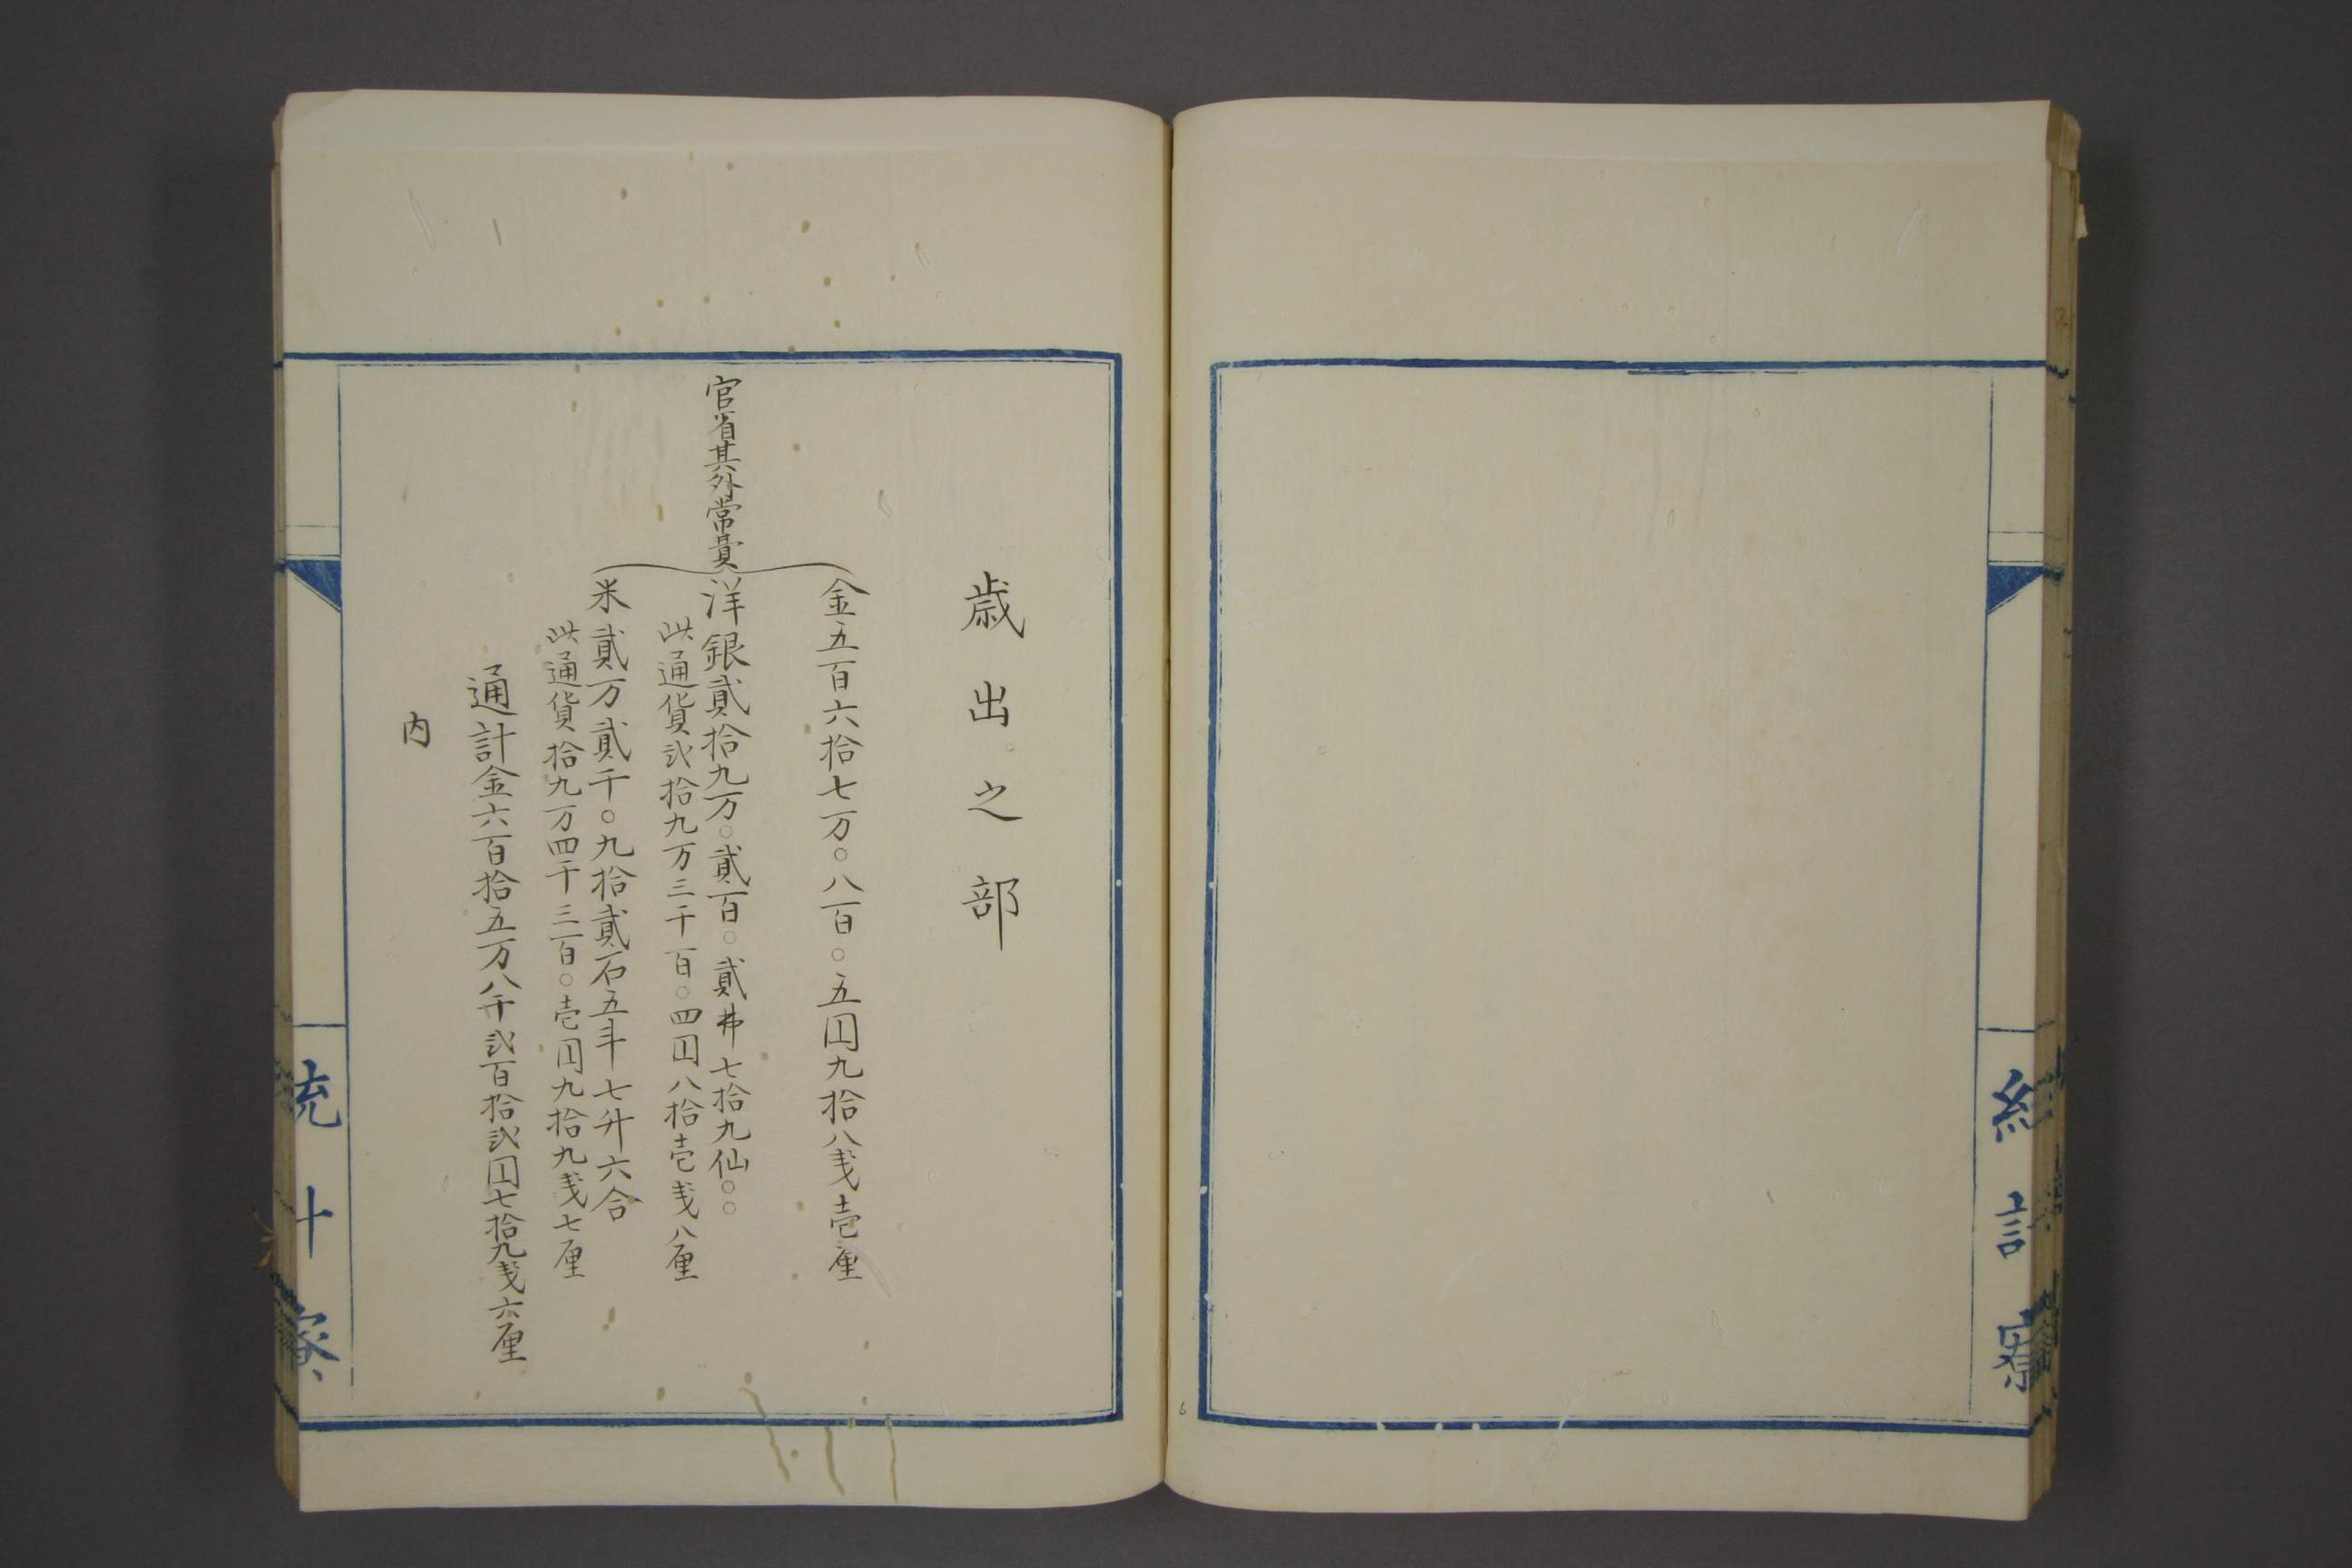 統計寮
歳出之部
官省其外常費
金五百六拾七万〇八百〇五円九拾八銭壱厘
洋銀貳拾九万〇貳百〇貳弗七拾九仙〇〇
此通貨弐拾九万三千百〇四円八拾壱銭八厘
米貳万貳千〇九拾貳石五斗七升六合
此通貨拾九万四千三百〇壱円九拾九銭七厘
通計金六百拾五万八千弐百拾弐円七拾九銭六厘
内
統計寮